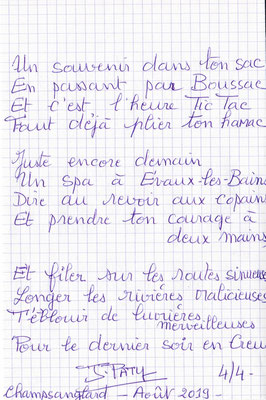 Un souvenir dans ton sac
En passant par Boussac
Et c'est l'heure Tic Tac
Faut déjà plier ton hamac
Juste encore demain
Un spa à Évaux-les-Bains
Dire au revoir aux copains
Et prendre ton courage à
deux mains
Et filer sur les routes sinueuses
Longer les rivières malicieuses
T'éblouir de lumières
merveilleuses
Pour le dernier soir en Creuse
4/4-
Champsanglard - Août 2019-